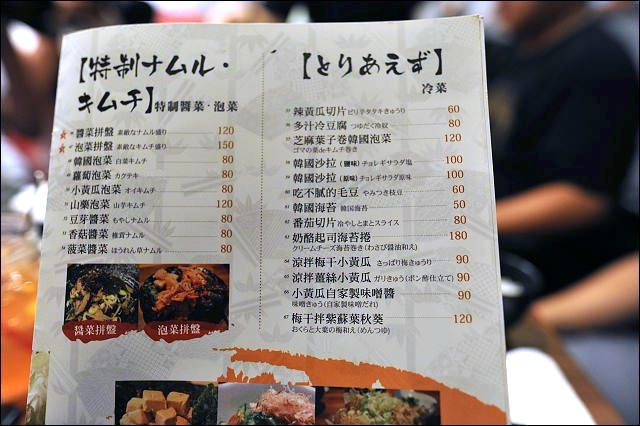 【特制ナムル・
キムチ】特制醬菜・泡菜
醬菜拼盤 素敵なナムル盛り 120
泡菜拼盤 素敵なキムチ盛り 150
韓國泡菜 白菜キムチ 80
蘿蔔泡菜 カクテキ 80
小黃瓜泡菜 オイキムチ 80
山藥泡菜 山芋キムチ 120
豆芽醬菜 もやしナムル 80
香菇醬菜 椎茸ナムル 80
菠菜醬菜 ほうれん草ナムル 80
醬菜拼盤
泡菜拼盤
【とりあえず】
冷菜
辣黃瓜切片 ピリ辛タタキきゅうり 60
多汁冷豆腐 つゆだく冷奴 80
芝麻葉子卷韓國泡菜 120
ゴマの葉deキムチ巻き
韓國沙拉(鹽味) チョレギサラダ塩 100
韓國沙拉(原味) チョレギサラダ原味 100
吃不膩的毛豆 やみつき枝豆 60
韓國海苔 韓国海苔 50
番茄切片 冷やしとまとスライス 80
奶酪起司海苔捲 180
クリームチーズ海苔巻き(わさび醤油和え)
涼拌梅干小黃瓜 さっぱり梅きゅうり 90
涼拌薑絲小黃瓜 ガリきゅう(ポン酢仕立て) 90
小黃瓜自家製味噌醬 90
味噌きゅう(自家製味噌だれ)
梅干拌紫蘇葉秋葵 120
おくらと大葉の梅和え(めんつゆ)